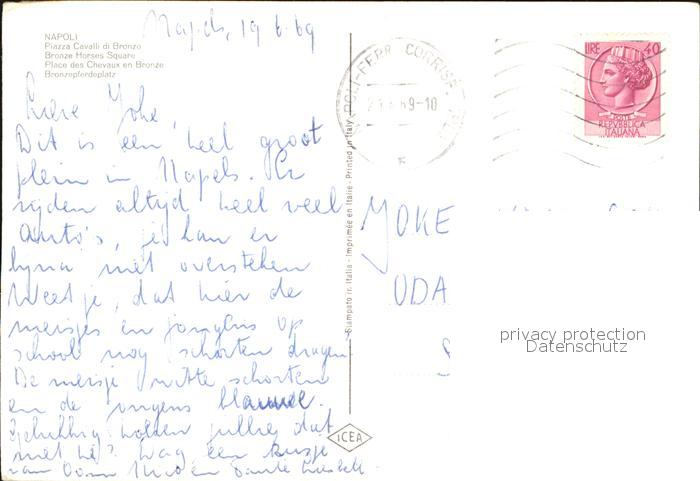 NAPOLI
Piazza Cavalli di Bronzo
Bronze Horses Square
Place des Chevaux en Bronze
Bronzepferdeplatz
Napels, 19 6.69
Lieve Joke,
Dit is een heel groot
plein in Napels. Er
rijden altijd heel veel
auto's, je kan er
bijna niet oversteken
Weet je, dat hier de
meisjes en jongens op
school nog schorten dragen.
De meisje witte schorten
en de jongens blauwe.
wolden jullie dat
niet hè? Dag een kusje
van Oom en Tante Liesbeth
Stampato in Italia - Imprimée en Italie - Printed in Italy
ICEA
CORRISP.
69-10
LIRE 40
POSTE
REPVBBLICA
ITALIANA
JOKE
UDA
privacy protection
Datenschutz